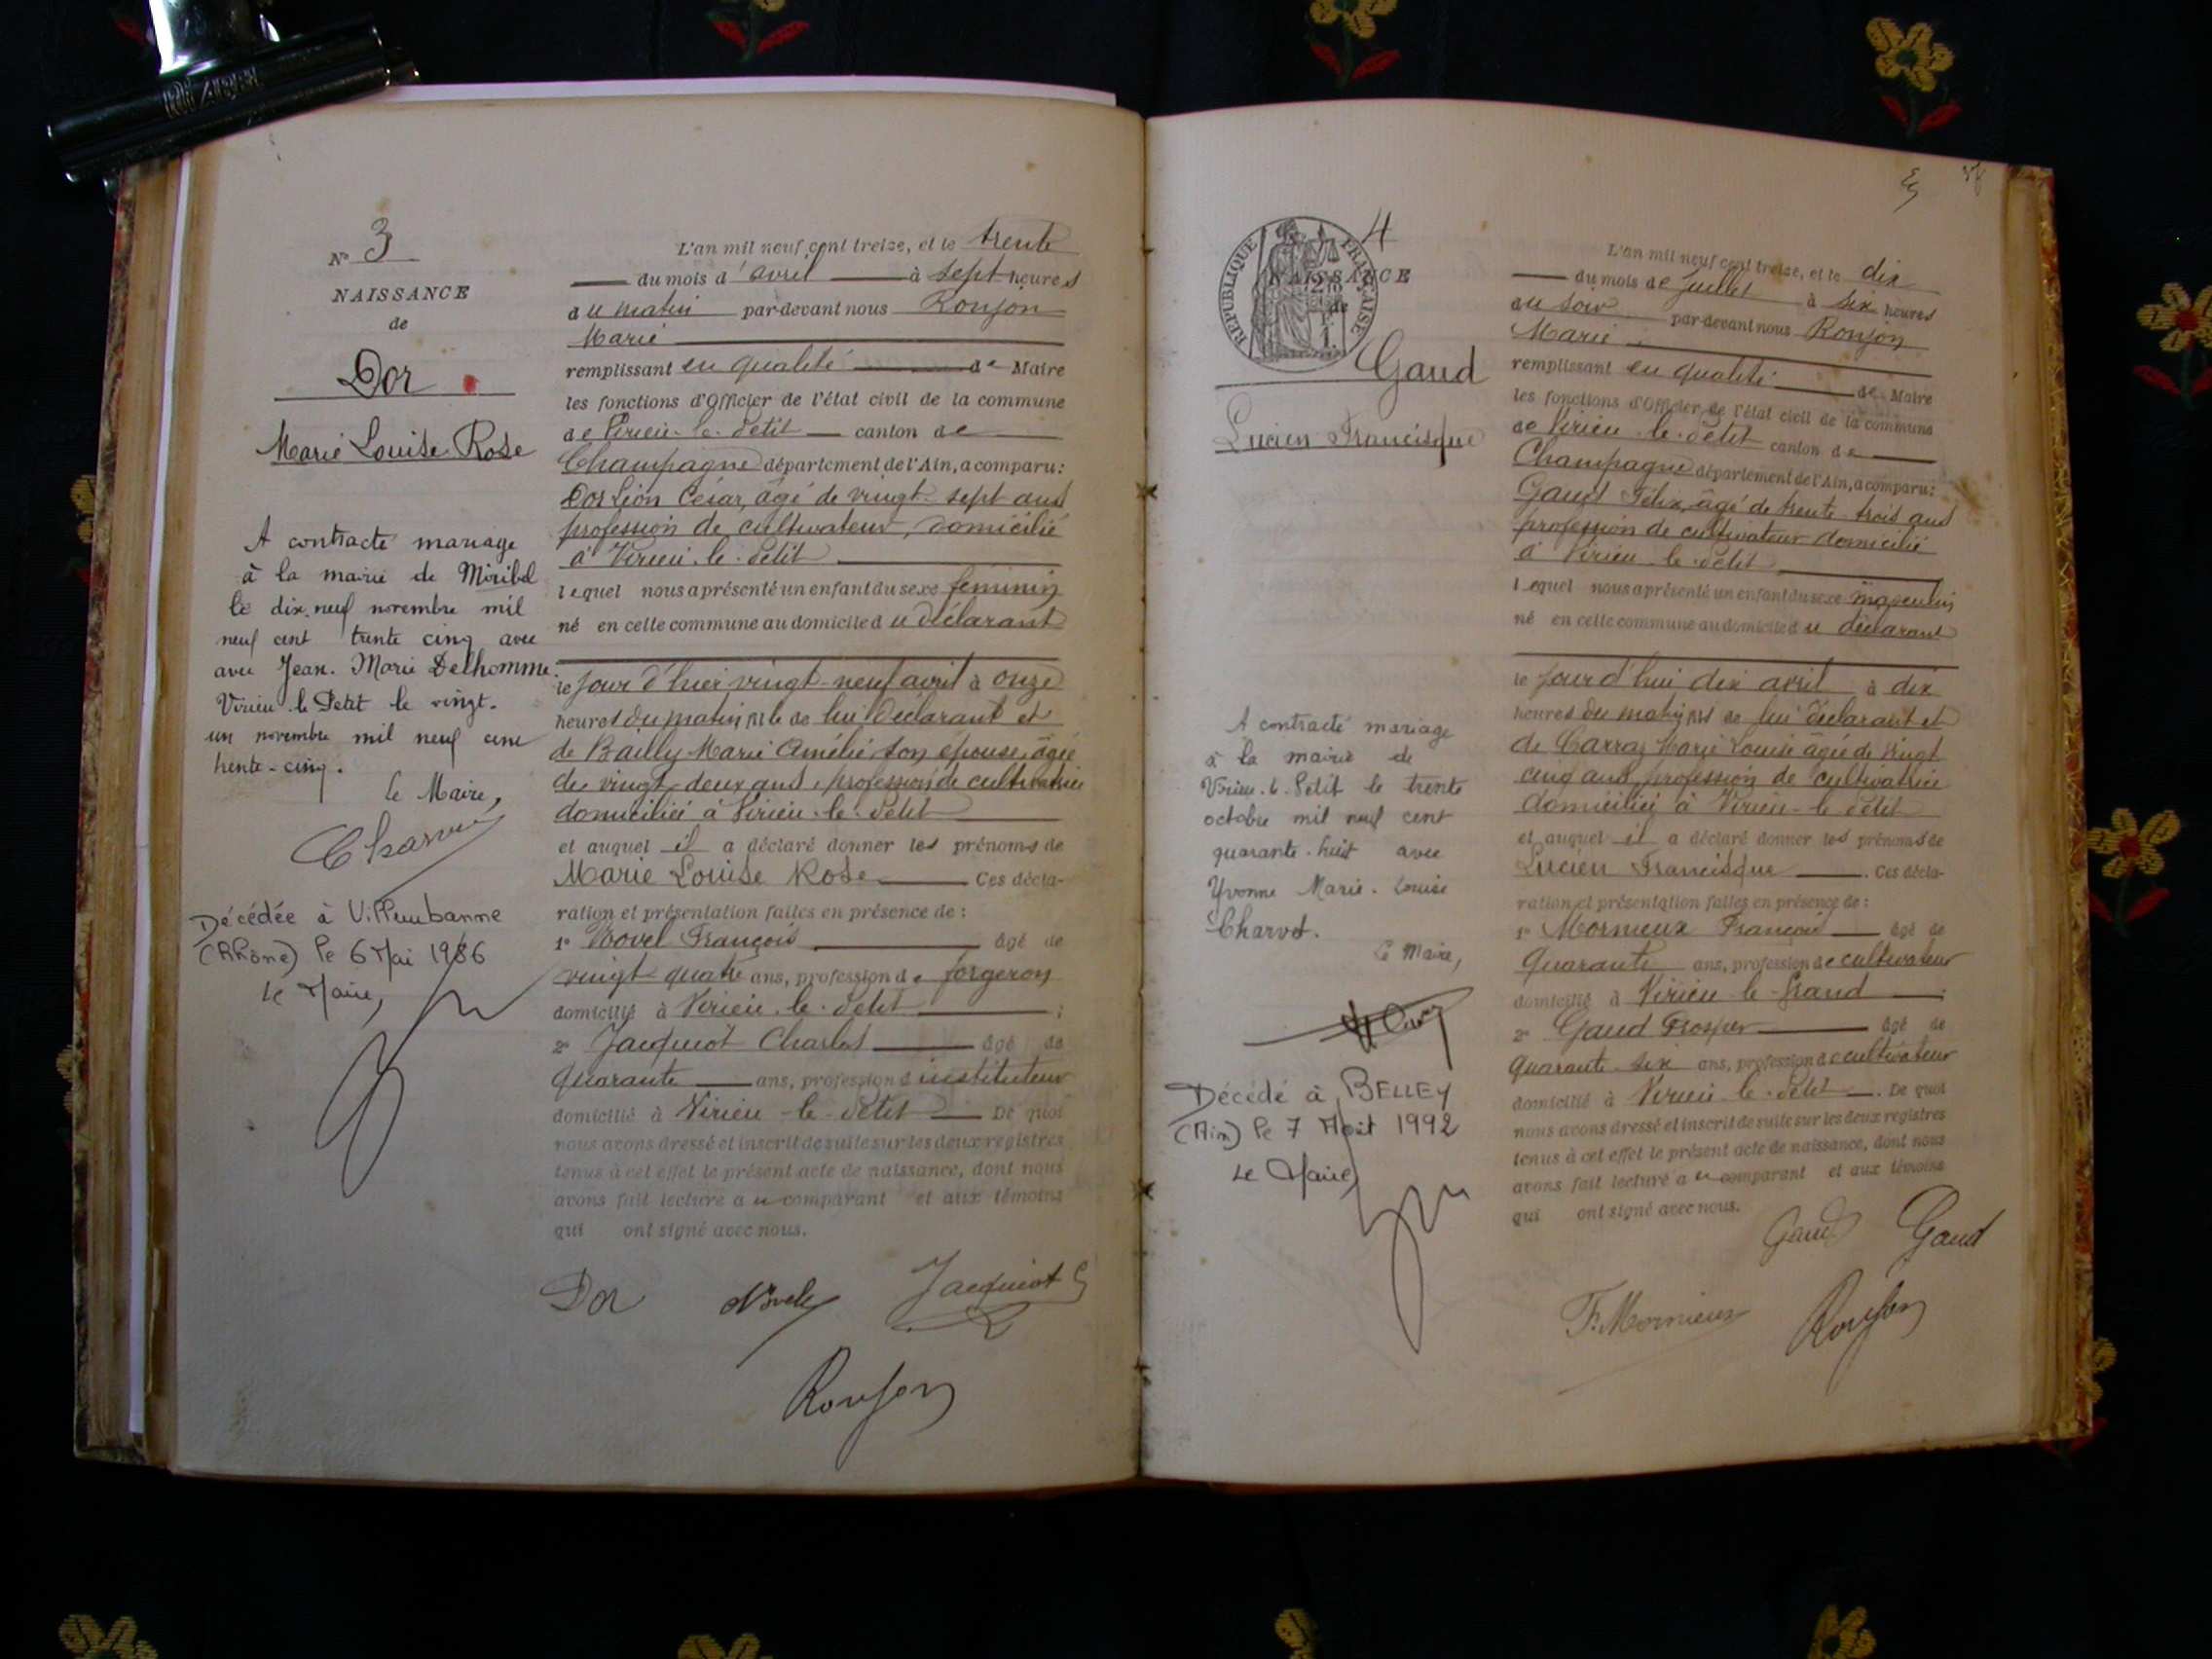 N° 3
NAISSANCE
de
Dor
Marie Louise Rose
A contracté mariage
à la mairie de Miribel
le dix neuf novembre mil
neuf cent trente cinq avec
avec Jean. Marie Delhomme.
Virieu le Petit le vingt.
un novembre mil neuf cent
trente-cinq.
le Maire,
Décédée à Villeurbanne
(Rhône) le 6 Mai 1986
Le Maire,
L'an mil neuf cent treize, et le trente
du mois d'avril à sept heures
du matin par-devant nous Roujon
Marie
remplissant en qualité de Maire
les fonctions d'Officier de l'état civil de la commune
de Virieu-le-Petit canton de
Champagne département de l'Ain, a comparu:
Dor Léon César, âgé de vingt-sept ans
profession de cultivateur, domicilié
à Virieu-le-Petit
lequel nous a présenté un enfant du sexe féminin
né en cette commune au domicile du déclarant
le jour d'hier vingt-neuf avril à onze
heures du matin, de lui déclarant et
de Bailly Marie Amélie, son épouse, âgée
de vingt-deux ans, profession de cultivatrice
domiciliée à Virieu-le-Petit
et auquel il a déclaré donner les prénoms de
Marie Louise Rose Ces décla-
ration et présentation faites en présence de:
1° Novel François âgé de
vingt-quatre ans, profession de forgeron
domicilié à Virieu-le-Petit ;
2° Jacquiot Charles âgé de
quarante ans, profession d'instituteur
domicilié à Virieu-le-Petit De quoi
nous avons dressé et inscrit de suite sur les deux registres
tenus à cet effet le présent acte de naissance, dont nous
avons fait lecture au comparant et aux témoins
qui ont signé avec nous.
Dor Novel Jacquiot
Roujon
4
RÉPUBLIQUE FRANÇAISE
NAISSANCE
de
Gaud
Lucien Francisque
A contracté mariage
à la mairie de
Virieu-le-Petit le trente
octobre mil neuf cent
quarante-huit avec
Yvonne Marie-Louise
Charvet.
Le Maire,
Décédé à BELLEY
(Ain) le 7 Août 1992
Le Maire,
L'an mil neuf cent treize, et le dix
du mois de Juillet à six heures
du soir par-devant nous Roujon
Marie
remplissant en qualité de Maire
les fonctions d'Officier de l'état civil de la commune
de Virieu-le-Petit canton de
Champagne département de l'Ain, a comparu:
Gaud Félix, âgé de trente-trois ans
profession de cultivateur domicilié
à Virieu-le-Petit
lequel nous a présenté un enfant du sexe masculin
né en cette commune au domicile du déclarant
le jour d'hui dix avril à dix
heures du matin de lui déclarant et
de Carraz Marie Louise âgée de vingt
cinq ans, profession de cultivatrice
domiciliée à Virieu-le-Petit
et auquel il a déclaré donner les prénoms de
Lucien Francisque . Ces décla-
ration et présentation faites en présence de:
1° Mornieux François âgé de
quarante ans, profession de cultivateur
domicilié à Virieu-le-Grand ;
2° Gaud Prosper âgé de
quarante-six ans, profession de cultivateur
domicilié à Virieu-le-Petit . De quoi
nous avons dressé et inscrit de suite sur les deux registres
tenus à cet effet le présent acte de naissance, dont nous
avons fait lecture au comparant et aux témoins
qui ont signé avec nous.
Gaud Gaud
F. Mornieux Roujon